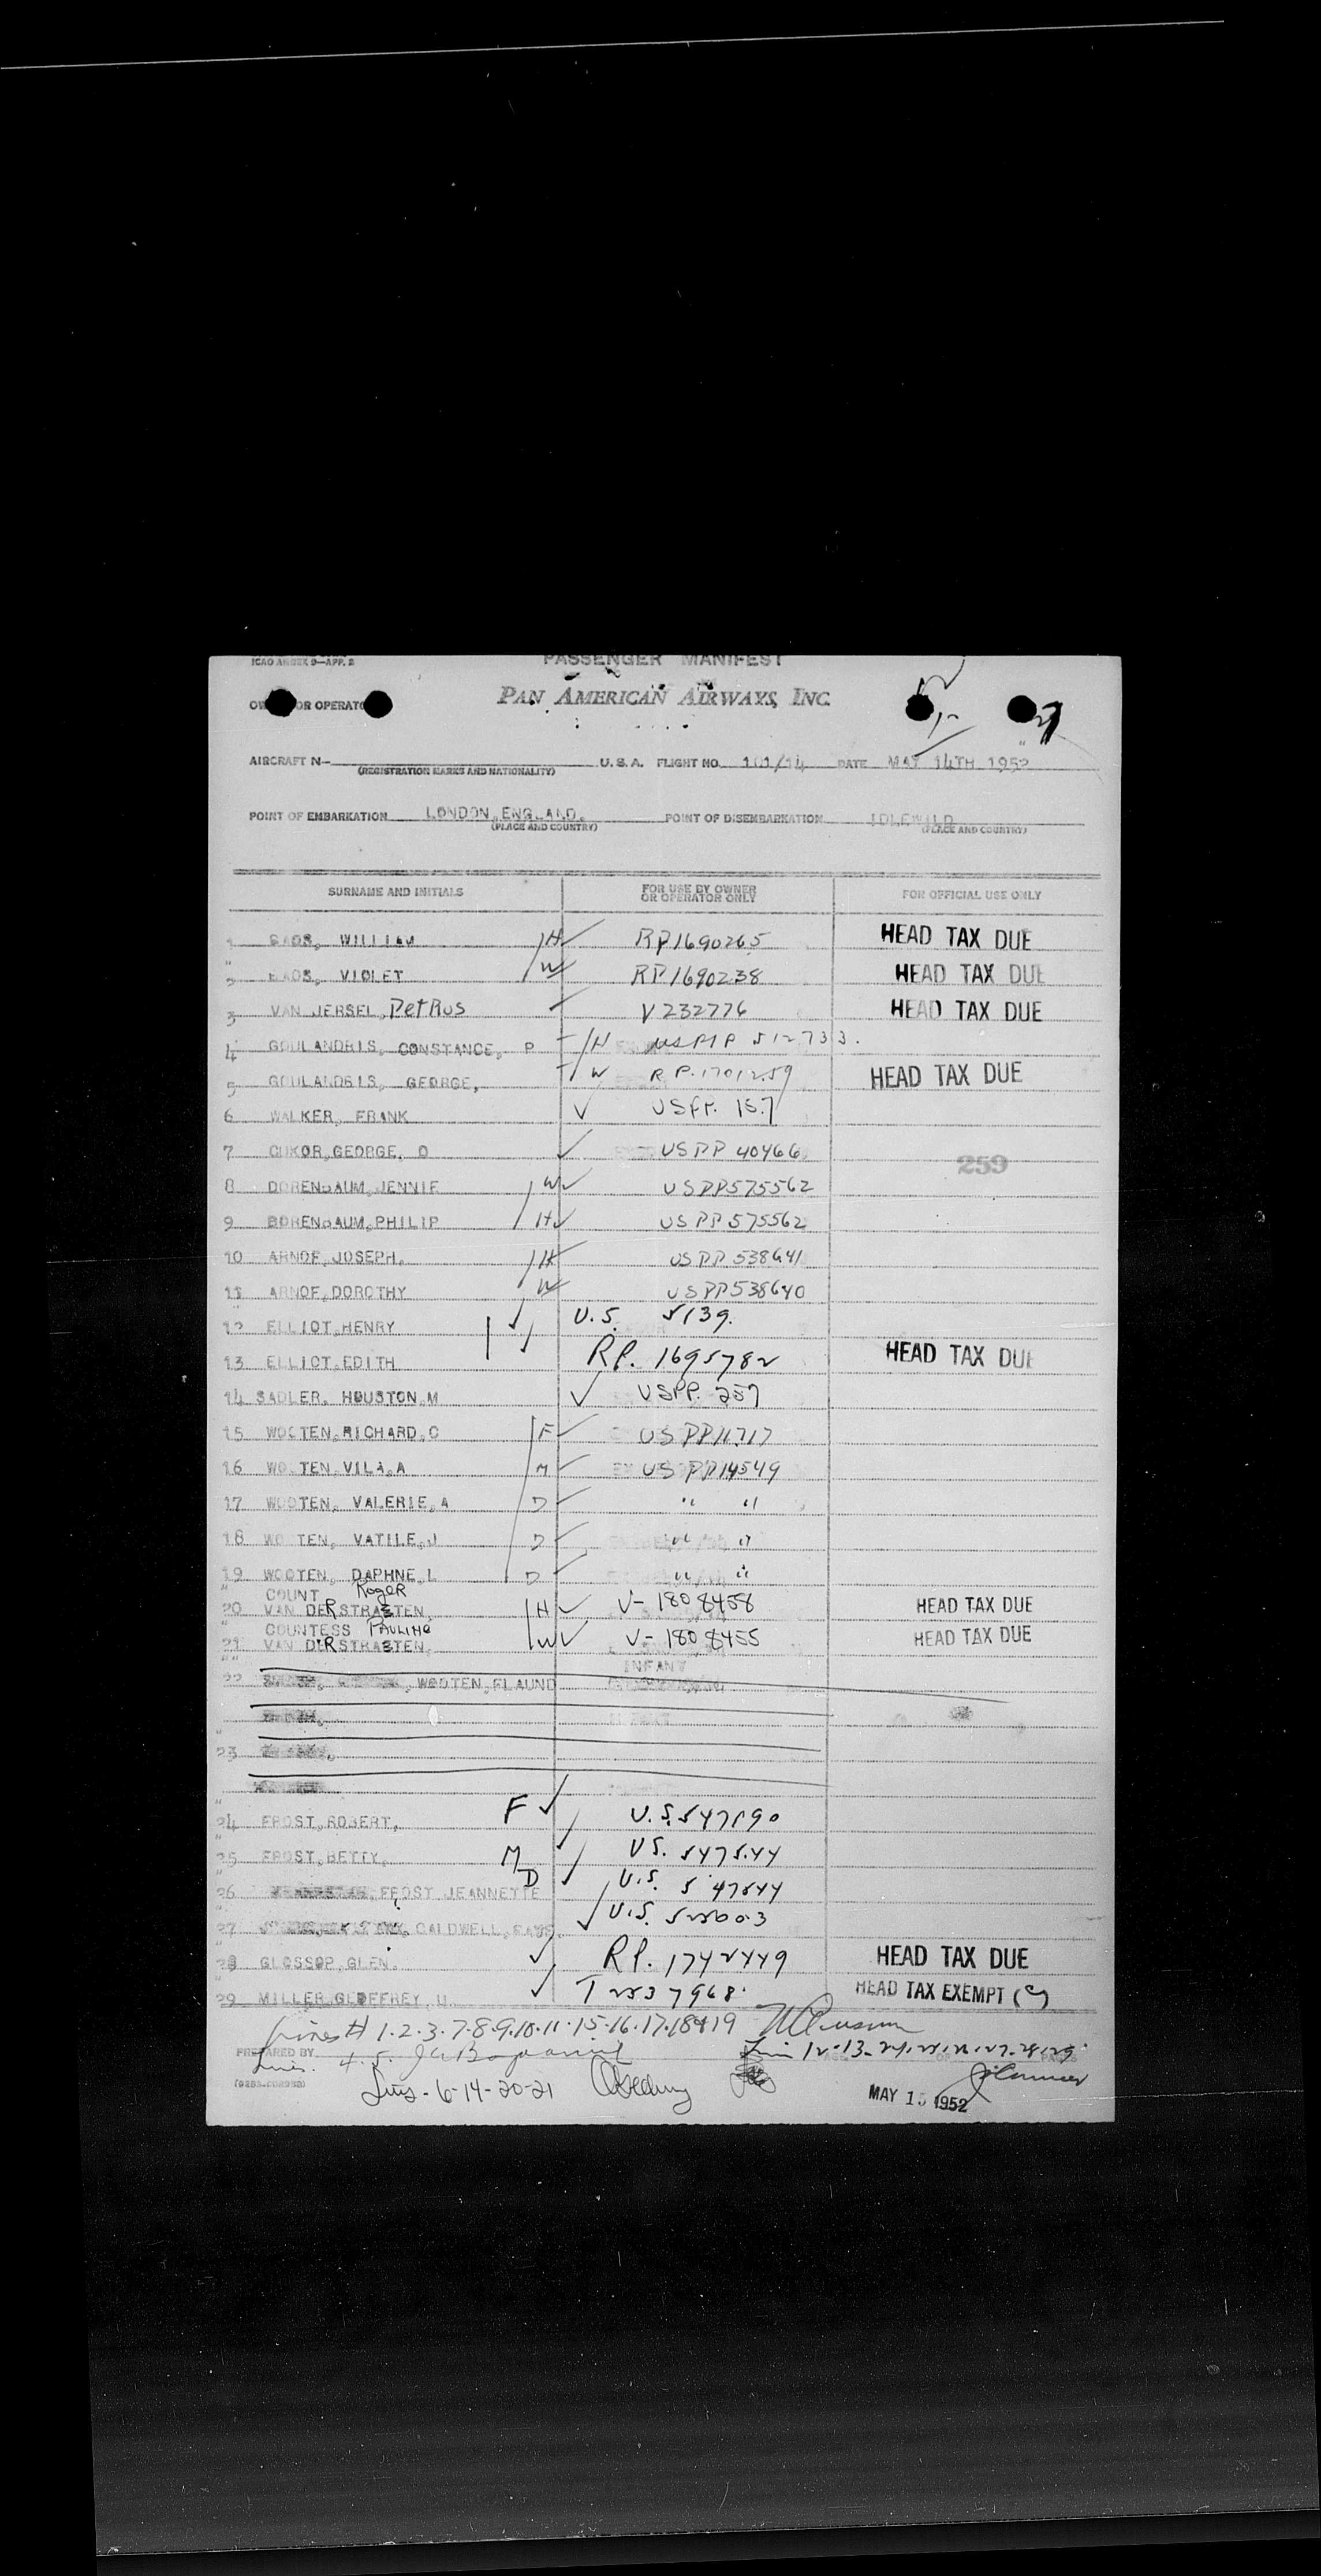 ICAO ANNEX 9—APP. 2
PASSENGER MANIFEST
OR OPERATO
PAN AMERICAN AIRWAYS, INC.
AIRCRAFT N- U. S. A. FLIGHT NO. 101/14 DATE MAY 14TH 1952
(REGISTRATION MARKS AND NATIONALITY)
POINT OF EMBARKATION LONDON, ENGLAND. POINT OF DISEMBARKATION IDLEWILD
(PLACE AND COUNTRY) (PLACE AND COUNTRY)
SURNAME AND INITIALS FOR USE BY OWNER OR OPERATOR ONLY FOR OFFICIAL USE ONLY
1 EADS, WILLIAM H ✓ RP1690265 HEAD TAX DUE
2 EADS, VIOLET W ✓ RP1690238 HEAD TAX DUE
3 VAN JERSEL, PetRus ✓ V232776 HEAD TAX DUE
4 GOULANDRIS, CONSTANCE, P H 512733.
5 GOULANDRIS, GEORGE, W R.P.1701259 HEAD TAX DUE
6 WALKER, FRANK ✓ 157
7 CUKOR, GEORGE, D ✓ USPP 40466 259
8 DORENBAUM, JENNIE W ✓ USPP575562
9 BORENBAUM, PHILIP H ✓ USPP575562
10 ARNOF, JOSEPH, H USPP 538641
11 ARNOF, DOROTHY W USPP538640
12 ELLIOT, HENRY ✓ U.S. 5139.
13 ELLIOT, EDITH ✓ RP. 1695782 HEAD TAX DUE
14 SADLER, HOUSTON, M ✓ USPP. 257
15 WOOTEN, RICHARD, C F ✓ USPP11717
16 WOOTEN, VILA, A M ✓ US PP14549
17 WOOTEN, VALERIE, A D ✓ " "
18 WOOTEN, VATILE, J D ✓ " "
19 WOOTEN, DAPHNE, L D ✓ " "
COUNT RogeR
20 VAN DERSTRAETEN, H ✓ V-1808458 HEAD TAX DUE
COUNTESS PAULINE
21 VAN DERSTRAETEN, W ✓ V-1808455 HEAD TAX DUE
INFANT
22 WOOTEN, FLAUND
23
24 FROST, ROBERT, F ✓ U.S. 547190
25 FROST, BETTY, M ✓ US. 547544
26 FROST JEANNETTE D ✓ U.S. 547544
27 CALDWELL, ✓ U.S.
28 GLOSSOP, GLEN. ✓ RP. 1742449 HEAD TAX DUE
29 MILLER, GEOFFREY, U ✓ T 2537968. HEAD TAX EXEMPT (9)
Lines # 1.2.3.7.8.9.10.11.15.16.17.18&19
PREPARED BY
Lines - 6-14-20-21
MAY 15 1952